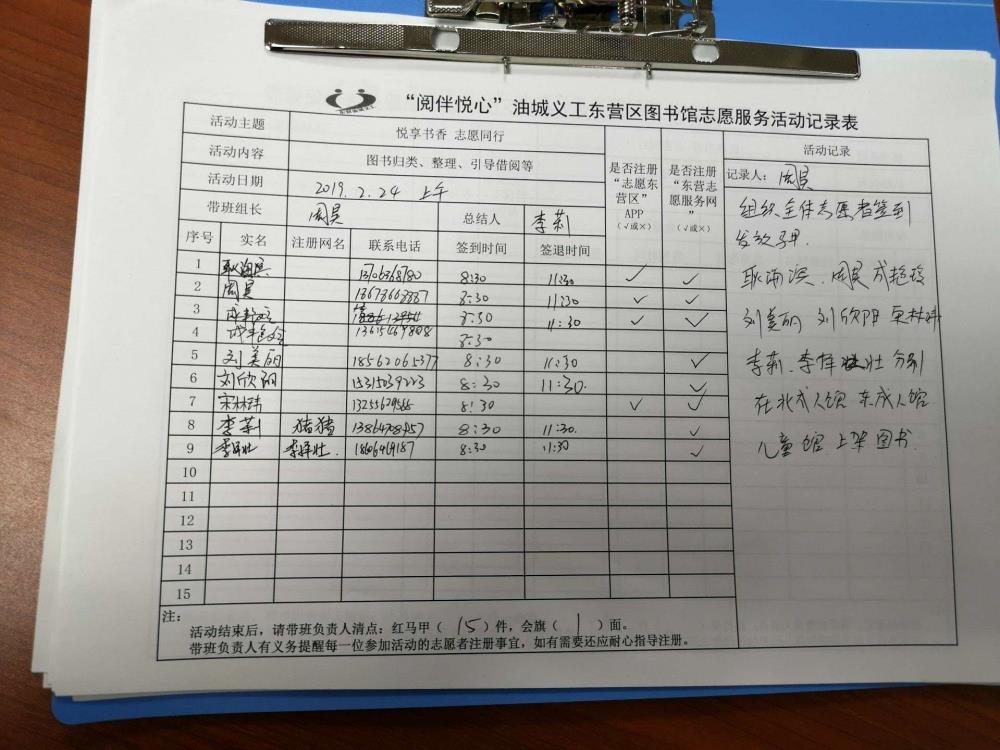 “阅伴悦心”油城义工东营区图书馆志愿服务活动记录表
活动主题 悦享书香 志愿同行
活动内容 图书归类、整理、引导借阅等
活动日期 2019.2.24 上午
带班组长 周昊 总结人 李莉
序号 实名 注册网名 联系电话 签到时间 签退时间 是否注册“志愿东营区”APP（√或×） 是否注册“东营志愿服务网”（√或×）
1 8:30 11:30 ✓ ✓
2 周昊 8:30 11:30 ✓ ✓
3 8:30 11:30 ✓ ✓
4 8:30
5 刘美丽 18562065377 8:30 11:30 ✓
6 刘欣阳 15315039223 8:30 11:30. ✓
7 宋林玮 8:30 ✓ ✓
8 李莉 猪猪 8:30 11:30. ✓
9 8:30 11:30 ✓
10
11
12
13
14
15
活动记录
记录人： 周昊
组织全体志愿者签到
发放马甲.
耿海滨、周昊
刘美丽 刘欣阳
李莉、 分别
在北成人馆 东成人馆
儿童馆上架图书.
注：
活动结束后，请带班负责人清点：红马甲（ 15 ）件，会旗（ 1 ）面。
带班负责人有义务提醒每一位参加活动的志愿者注册事宜，如有需要还应耐心指导注册。